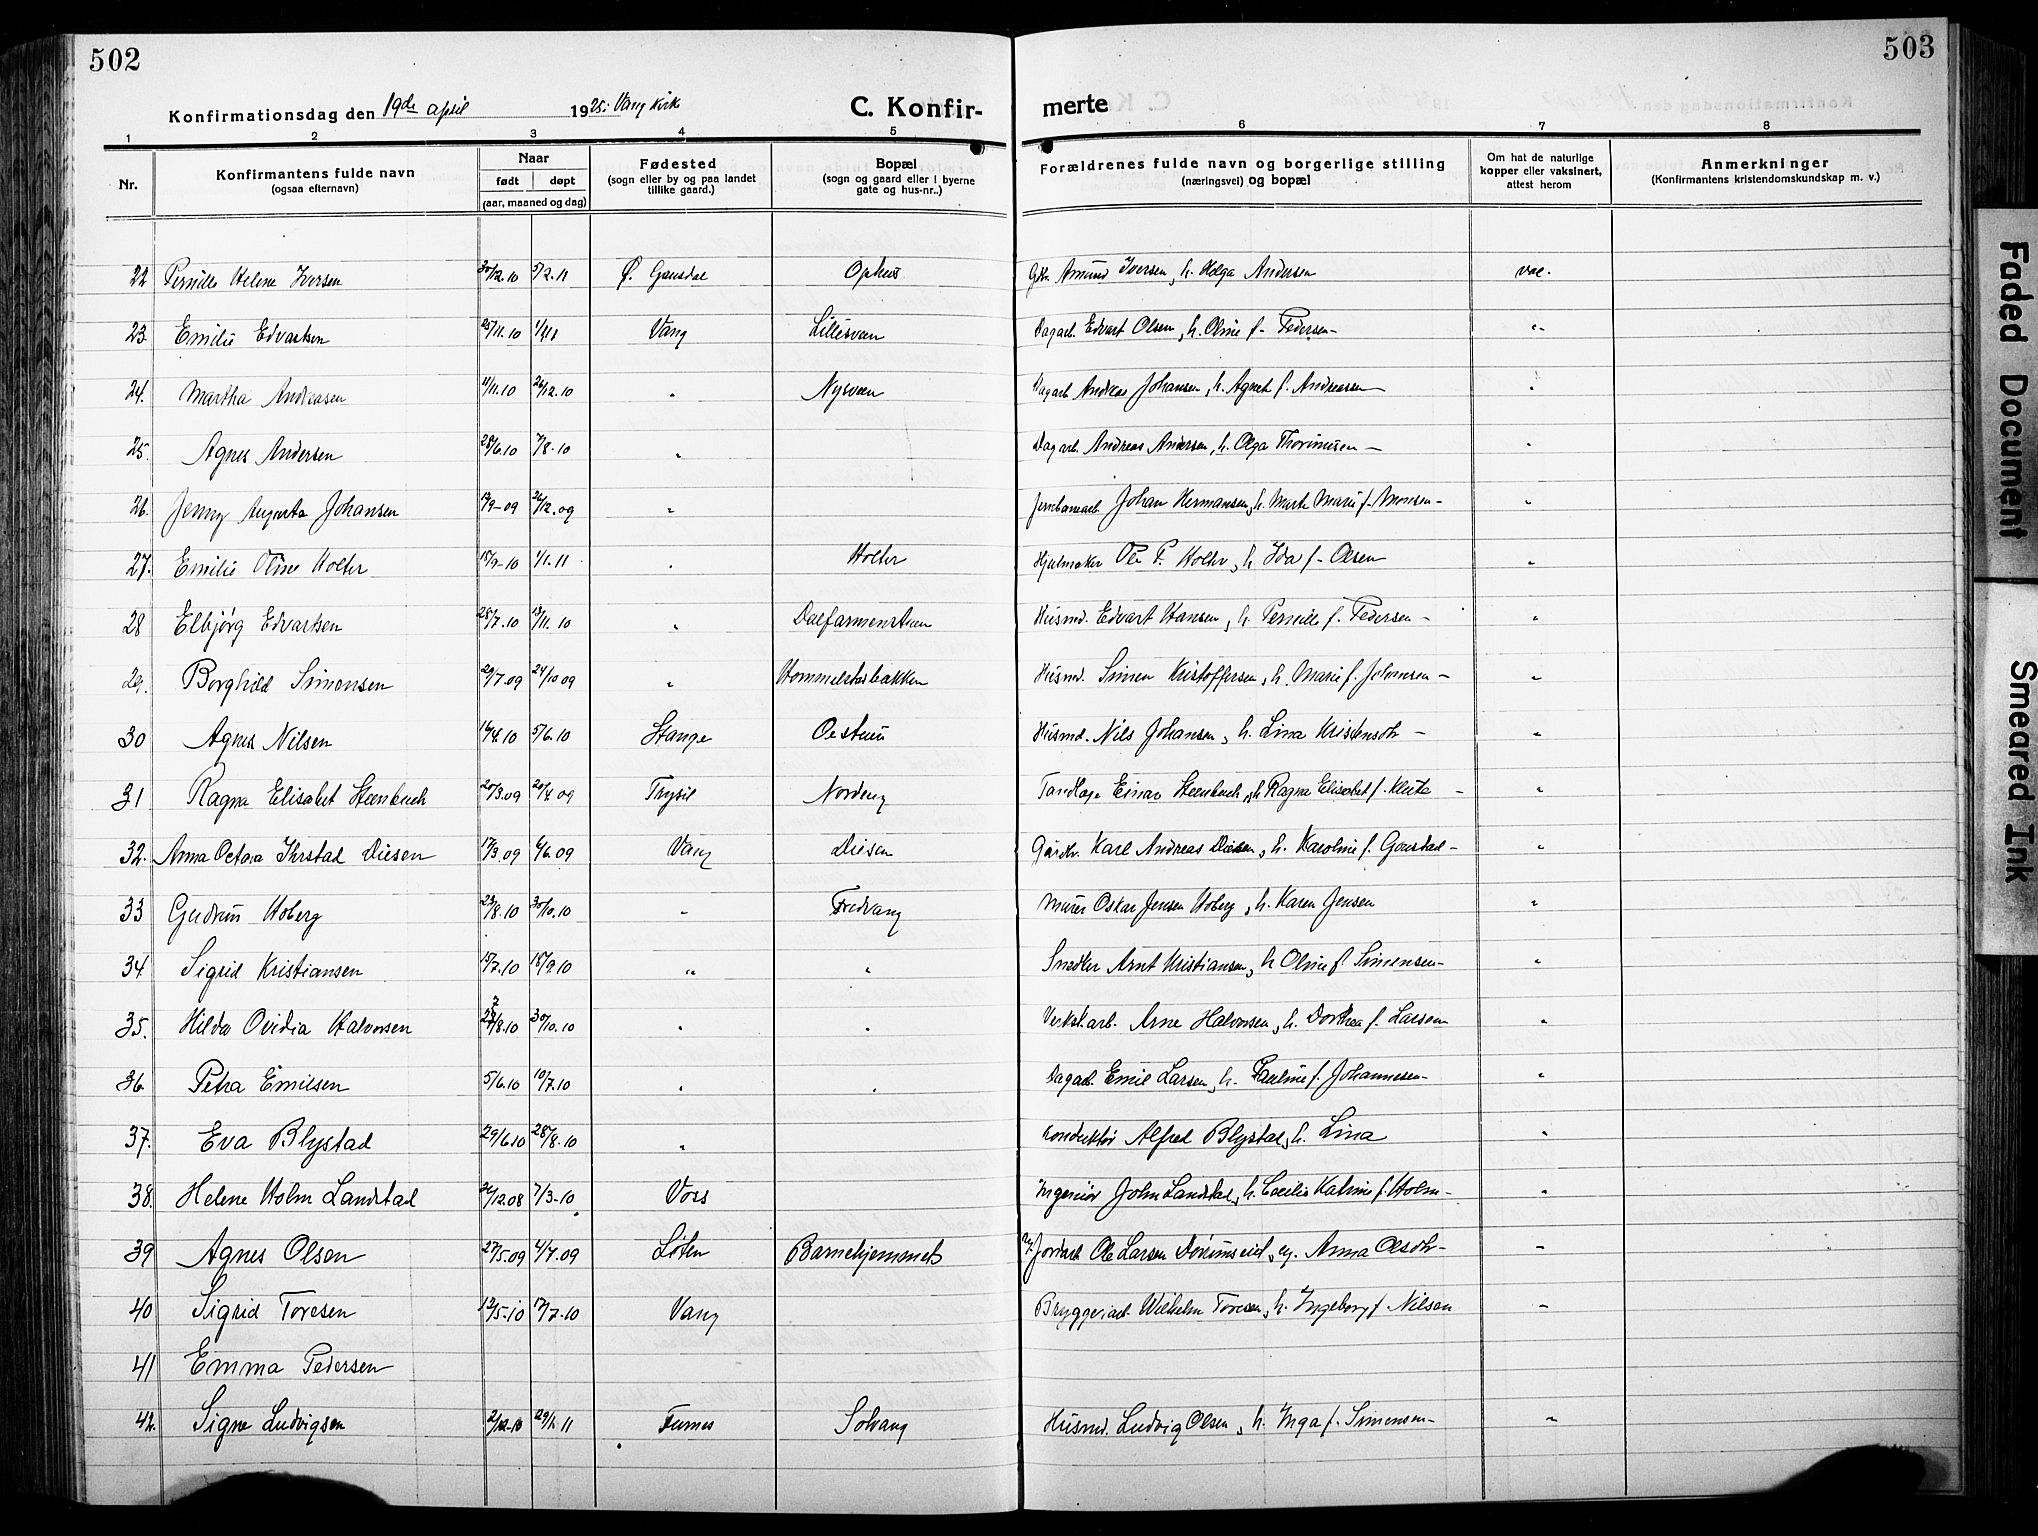 502
503
Konfirmationsdag den 19de April 1925. Vang Kirk
C. Konfir-
merte
1 2 3 4 5 6 7 8
Nr.
Konfirmantens fulde navn
(ogsaa efternavn)
Naar
født døpt
(aar, maaned og dag)
Fødested
(sogn eller by og paa landet
tillike gaard.)
Bopæl
(sogn og gaard eller i byerne
gate og hus-nr..)
Forældrenes fulde navn og borgerlige stilling
(næringsvei) og bopæl
Om hat de naturlige
kopper eller vaksinert,
attest herom
Anmerkninger
(Konfirmantens kristendomskundskap m. v.)
22 Pernille Helene Iversen 30/12.10 5/2.11 Ø. Gausdal Ophus Gbr. Amund Iversen, h. Helga Andersen vac.
23. Emilie Edvartsen 25/11.10 Vang Lillesveen Dagarb. Edvart Olsen, h. Oline f. Pedersen - "
24. Martha Andreasen 11/11.10 26/12.10 " Nysveen Dagarb. Andreas Johansen, h. Agnet f. Andreassen - "
25. Agnes Andersen 28/6.10 7/8.10 " Dagarb. Andreas Andersen, h. Olga Thorinusen - "
26. Jenny Augusta Johansen 12/9-09 26/12.09 " Jernbanearb. Johan Hermansen, h. Marte Marie f. Monsen - "
27. Emilie Otine Holter 15/9-10 1/1.11 " Holter Hjulmaker Ole P. Holter, h. Ida f. Olsen "
28 Elbjørg Edvartsen 28/7.10 13/11.10 " Dalfarmenstuen Husmd. Edvart Hansen, h. Pernille f. Pedersen - "
29. Borghild Simensen 29/7.09 24/10 09 " Hommelstadbakken Husmd. Simen Kristoffersen, h. Marie f. Johnsen - "
30 Agnes Nilsen 16/4.10 5/6.10 Stange Oestuu Husmd. Nils Johansen, h. Lina Kristensdtr - "
31 Ragna Elisabet Steenbuch 20/3.09 20/4 09 Trysil Nordeng Tandlæge Einar Steenbuch, h. Ragna Elisabet f. - "
32. Anna Octava Ihrstad Diesen 17/3 09 6/6.09 Vang Diesen Gårdbr. Karl Andreas Diesen, h. Karoline f. Gaustad - "
33 Gudrun Hoberg 23/8.10 30/10.10 " Fredvang Murer Oskar Jensen Hoberg, h. Karen Jensen "
34. Sigrid Kristiansen 15/7.10 18/9 10 " " Snedker Arnt Kristiansen, h Oline f. Simensen - "
35. Hilda Ovidia Halvorsen 7 23/8.10 30/10.10 " " Verkst.arb. Arne Halvorsen, h. Dorthea f. Larsen "
36. Petra Emilsen 5/6.10 10/7.10 " " Dagarb. Emil Larsen, h. Pauline f. Johannesen - "
37. Eva Blystad 29/6.10 28/8.10 " Konduktør Alfred Blystad, h. Lina "
38. Helene Holm Landstad 26/12.08 7/3-10 Voss Ingeniør John Landstad, h. Cecilie Katrine f. Holm - "
39 Agnes Olsen 27/5.09 4/7.09 Løten Barnehjemmet Jordarb. Ole Larsen Dørumseid, ug. Anna Olsdtr - -
40 Sigrid Toresen 12/5-10 17/7.10 Vang Bryggeriarb. Wilhelm Toresen, h. Ingeborg f. Nilsen -
41 Emma Pedersen
42. Signe Ludvigsen 2/12-10 29/1.11 Furnes Solvang Husmd. Ludvig Olsen, h. Inga f. Simensen - "
Faded Document
Smeared Ink